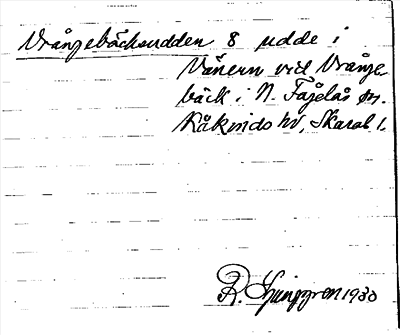 Vrångebäcksudden 8 udde i
Vänern vid Vrånge-
bäck i N. Fågelås sn.
Kåkinds hd, Skarab. l.
R. Ljunggren 1930